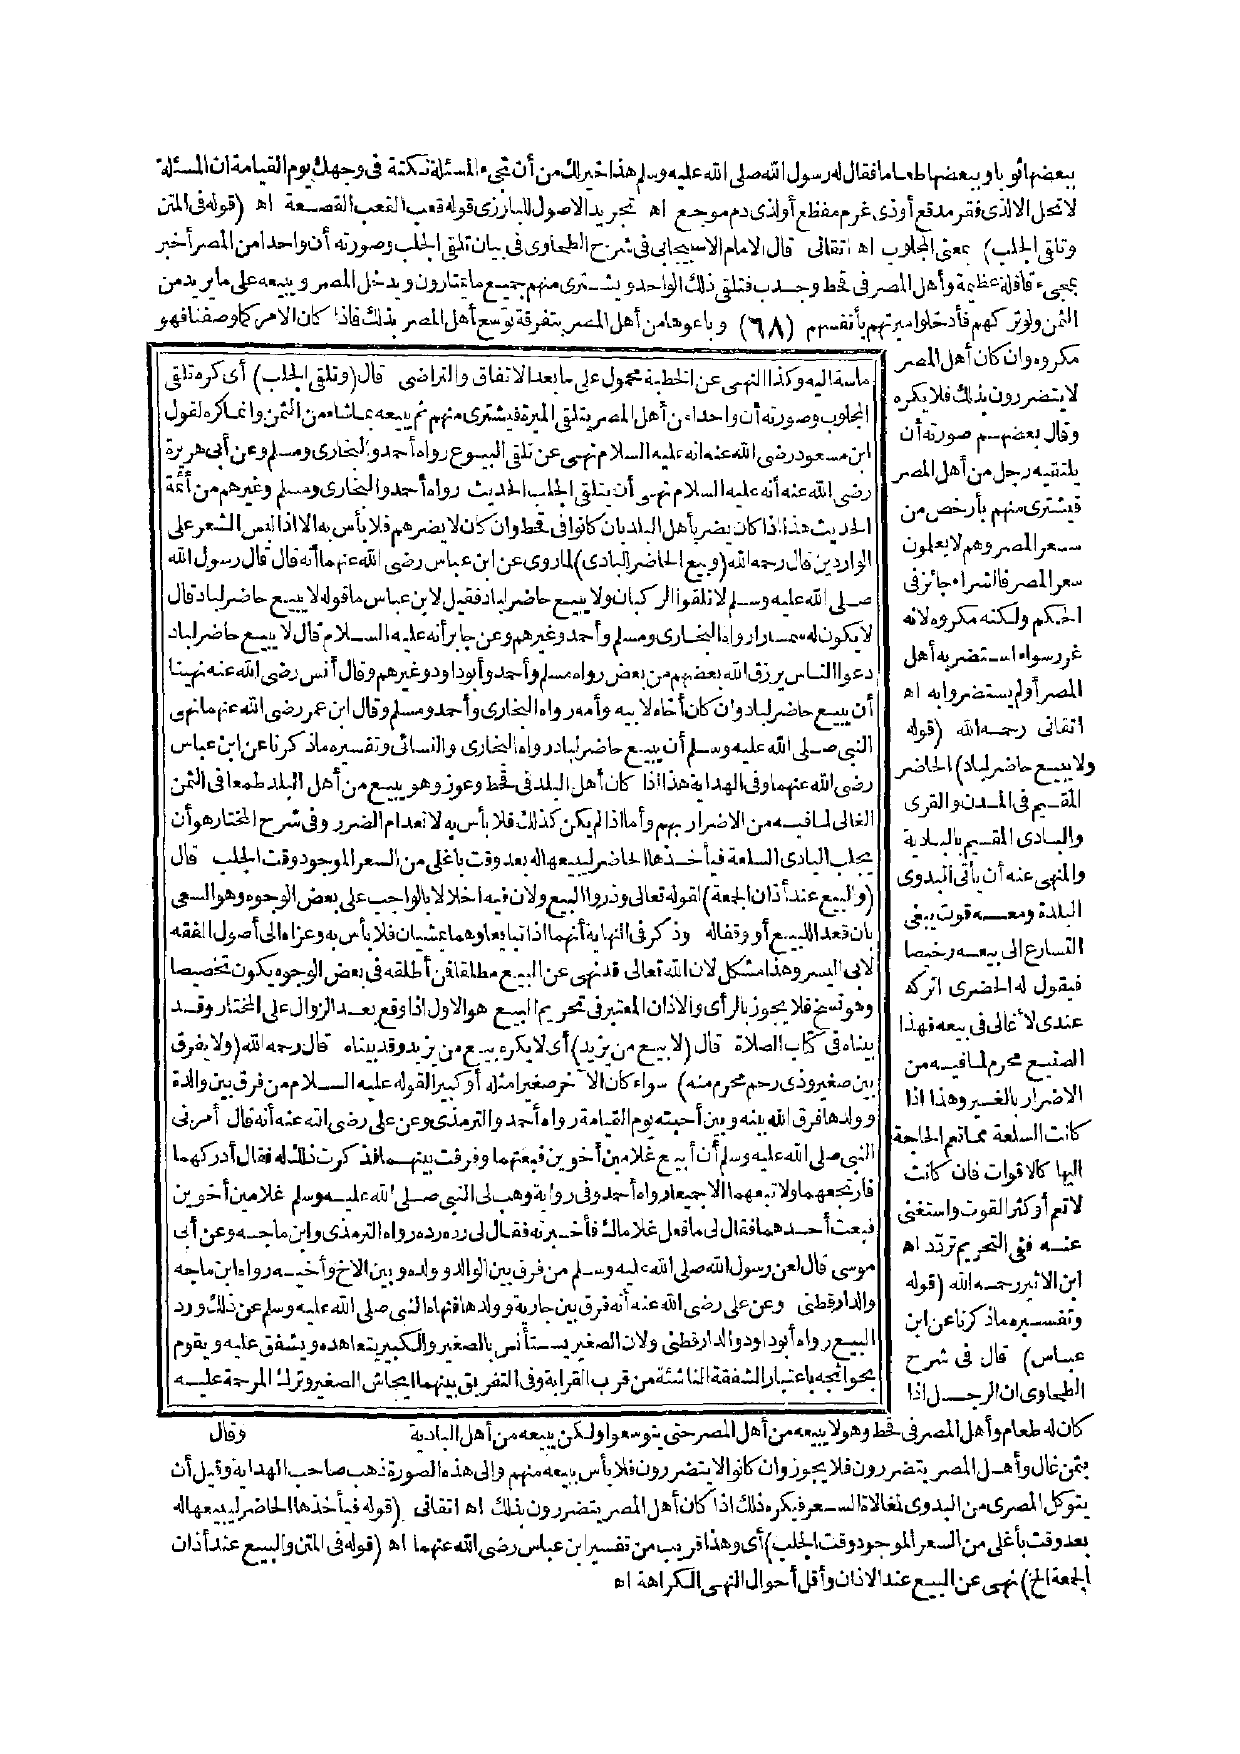 ببعضها ثوبا وببعضها طعاما فقال له رسول الله صلى الله عليه وسلم هذا خير لك من أن تجيء المسئلة نكتة فى وجهك يوم القيامة ان المسئلة
لا تحل الا لذى فقر مدقع أو ذى غرم مفظع أو لذى دم موجع اه تجريد الاصول للبارزى قوله قعب القعب القصعة اه (قوله فى المتن
وتلقى الجلب) بمعنى المجلوب اه اتقانى قال الامام الاسبيجابى فى شرح الطحاوى فى بيان تلقى الجلب وصورته أن واحدا من المصر أخبر
بمجىء قافلة عظيمة وأهل المصر فى قحط وجدب فتلقى ذلك الواحد ويشترى منهم جميع ما يمتارون ويدخل المصر ويبيعه على ما يريد من
الثمن ولو تركهم فأدخلوا ميرتهم بأنفسهم (٦٨) وباعوها من أهل المصر بتفرقة توسع أهل المصر بذلك فاذا كان الامر كما وصفنا فهو
مكروه وان كان أهل المصر
لا يتضررون بذلك فلا يكره
وقال بعضهم صورته أن
يلتقيه رجل من أهل المصر
فيشترى منهم بأرخص من
سعر المصر وهم لا يعلمون
سعر المصر فالشراء جائز فى
الحكم ولكنه مكروه لانه
غر رسواء استضر به أهل
المصر أو لم يستضروا به اه
اتقانى رحمه الله (قوله
ولا يبيع حاضر لباد) الحاضر
المقيم فى المدن والقرى
والبادى المقيم بالبادية
والمنهى عنه أن يأتى البدوى
البلدة ومعه قوت يبغى
التسارع الى بيعه رخيصا
فيقول له الحضرى اتركه
عندى لأغالى فى بيعه فهذا
الصنيع محرم لما فيه من
الاضرار بالغير وهذا اذا
كانت السلعة مما تعم الحاجة
اليها كالاقوات فان كانت
لا تعم أو كثر القوت واستغنى
عنه ففى التحريم تردد اه
ابن الاثير رحمه الله (قوله
وتفسيره ما ذكرنا عن ابن
عباس) قال فى شرح
الطحاوى ان الرجل اذا
ماسة اليه وكذا النهى عن الخطبة محمول على ما بعد الاتفاق والتراضى قال (وتلقى الجلب) أى كره تلقى
المجلوب وصورته أن واحدا من أهل المصر يتلقى الميرة فيشترى منهم ثم يبيعه بما شاء من الثمن وانما كره لقول
ابن مسعود رضى الله عنه انه عليه السلام نهى عن تلقى البيوع رواه أحمد والبخارى ومسلم وعن أبى هريرة
رضى الله عنه أنه عليه السلام نهى أن يتلقى الجلب الحديث رواه أحمد والبخارى ومسلم وغيرهم من أئمة
الحديث هذا اذا كان يضر بأهل البلد بان كانوا فى قحط وان كان لا يضرهم فلا بأس به الا اذا لبس السعر على
الواردين قال رحمه الله (وبيع الحاضر للبادى) لما روى عن ابن عباس رضى الله عنهما أنه قال قال رسول الله
صلى الله عليه وسلم لا تلقوا الركبان ولا يبيع حاضر لباد فقيل لابن عباس ما قوله لا يبيع حاضر لباد قال
لا يكون له سمسارا رواه البخارى ومسلم وأحمد وغيرهم وعن جابر أنه عليه السلام قال لا يبيع حاضر لباد
دعوا الناس يرزق الله بعضهم من بعض رواه مسلم وأحمد وأبو داود وغيرهم وقال أنس رضى الله عنه نهينا
أن يبيع حاضر لباد وان كان أخاه لابيه وأمه رواه البخارى وأحمد ومسلم وقال ابن عمر رضى الله عنهما نهى
النبى صلى الله عليه وسلم أن يبيع حاضر لباد رواه البخارى والنسائى وتفسيره ما ذكرنا عن ابن عباس
رضى الله عنهما وفى الهداية هذا اذا كان أهل البلد فى قحط وعوز وهو يبيع من أهل البلد طمعا فى الثمن
الغالى لما فيه من الاضرار بهم وأما اذا لم يكن كذلك فلا بأس به لانعدام الضرر وفى شرح المختار هو أن
يجلب البادى السلعة فيأخذها الحاضر ليبيعها له بعد وقت باغلى من السعر الموجود وقت الجلب قال
(والبيع عند أذان الجمعة) لقوله تعالى وذروا البيع ولان فيه اخلالا بالواجب على بعض الوجوه وهو السعى
بان قعد للبيع أو وقفا له وذكر فى النهاية أنهما اذا تبايعا وهما يمشيان فلا بأس به وعزاه الى أصول الفقه
لابى اليسر وهذا مشكل لان الله تعالى قد نهى عن البيع مطلقا فمن أطلقه فى بعض الوجوه يكون تخصيصا
وهو نسخ فلا يجوز بالرأى والاذان المعتبر فى تحريم البيع هو الاول اذا وقع بعد الزوال على المختار وقد
بيناه فى كتاب الصلاة قال (لا بيع من يزيد) أى لا يكره بيع من يزيد وقد بيناه قال رحمه الله (ولا يفرق
بين صغير وذى رحم محرم منه) سواء كان الآخر صغيرا مثله أو كبيرا لقوله عليه السلام من فرق بين والدة
وولدها فرق الله بينه وبين أحبته يوم القيامة رواه أحمد والترمذى وعن على رضى الله عنه أنه قال أمرنى
النبى صلى الله عليه وسلم أن أبيع غلامين أخوين فبعتهما وفرقت بينهما فذكرت ذلك له فقال أدركهما
فارتجعهما ولا تبعهما الا جميعا رواه أحمد وفى رواية وهب لى النبى صلى الله عليه وسلم غلامين أخوين
فبعت أحدهما فقال لى ما فعل غلامك فأخبرته فقال لى رده رده رواه الترمذى وابن ماجه وعن أبى
موسى قال لعن رسول الله صلى الله عليه وسلم من فرق بين الوالد وولده وبين الاخ وأخيه رواه ابن ماجه
والدارقطنى وعن على رضى الله عنه أنه فرق بين جارية وولدها فنهاه النبى صلى الله عليه وسلم عن ذلك ورد
البيع رواه أبو داود والدارقطنى ولان الصغير يستأنس بالصغير والكبير يتعاهده ويشفق عليه ويقوم
بحوائجه باعتبار الشفقة الناشئة من قرب القرابة وفى التفريق بينهما ايحاش الصغير وترك المرحمة عليه
وقال
كان له طعام وأهل المصر فى قحط وهو لا يبيعه من أهل المصر حتى يتوسعوا ولكن يبيعه من أهل البادية
بثمن غال وأهل المصر يتضررون فلا يجوز وان كانوا لا يتضررون فلا بأس ببيعه منهم والى هذه الصورة ذهب صاحب الهداية وقيل أن
يتوكل المصرى من البدوى لمغالاة السعر فيكره ذلك اذا كان أهل المصر يتضررون بذلك اه اتقانى (قوله فيأخذها الحاضر ليبيعها له
بعد وقت بأغلى من السعر الموجود وقت الجلب) أى وهذا قريب من تفسير ابن عباس رضى الله عنهما اه (قوله فى المتن والبيع عند أذان
الجمعة الخ) نهى عن البيع عند الاذان وأقل أحوال النهى الكراهة اه